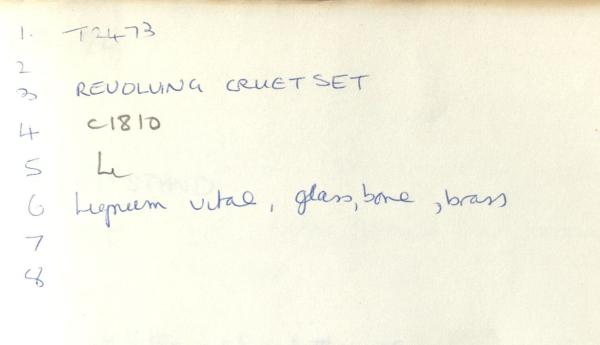 1. T2473
2
3 REVOLVING CRUET SET
4 c1810
5 L
6 Lignum vitae, glass, bone, brass
7
8